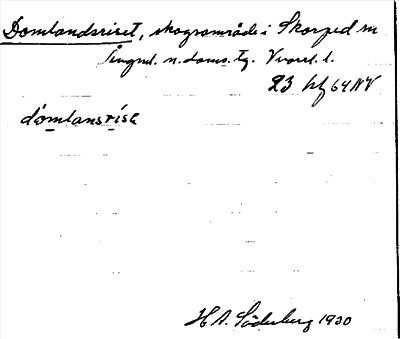 Domlandsriset, skogsområde i Skorped sn
Ångml. n. doms. tg. Vnorrl. l.
23 hf 64 NV
domlansrisa
H A. Söderberg 1930